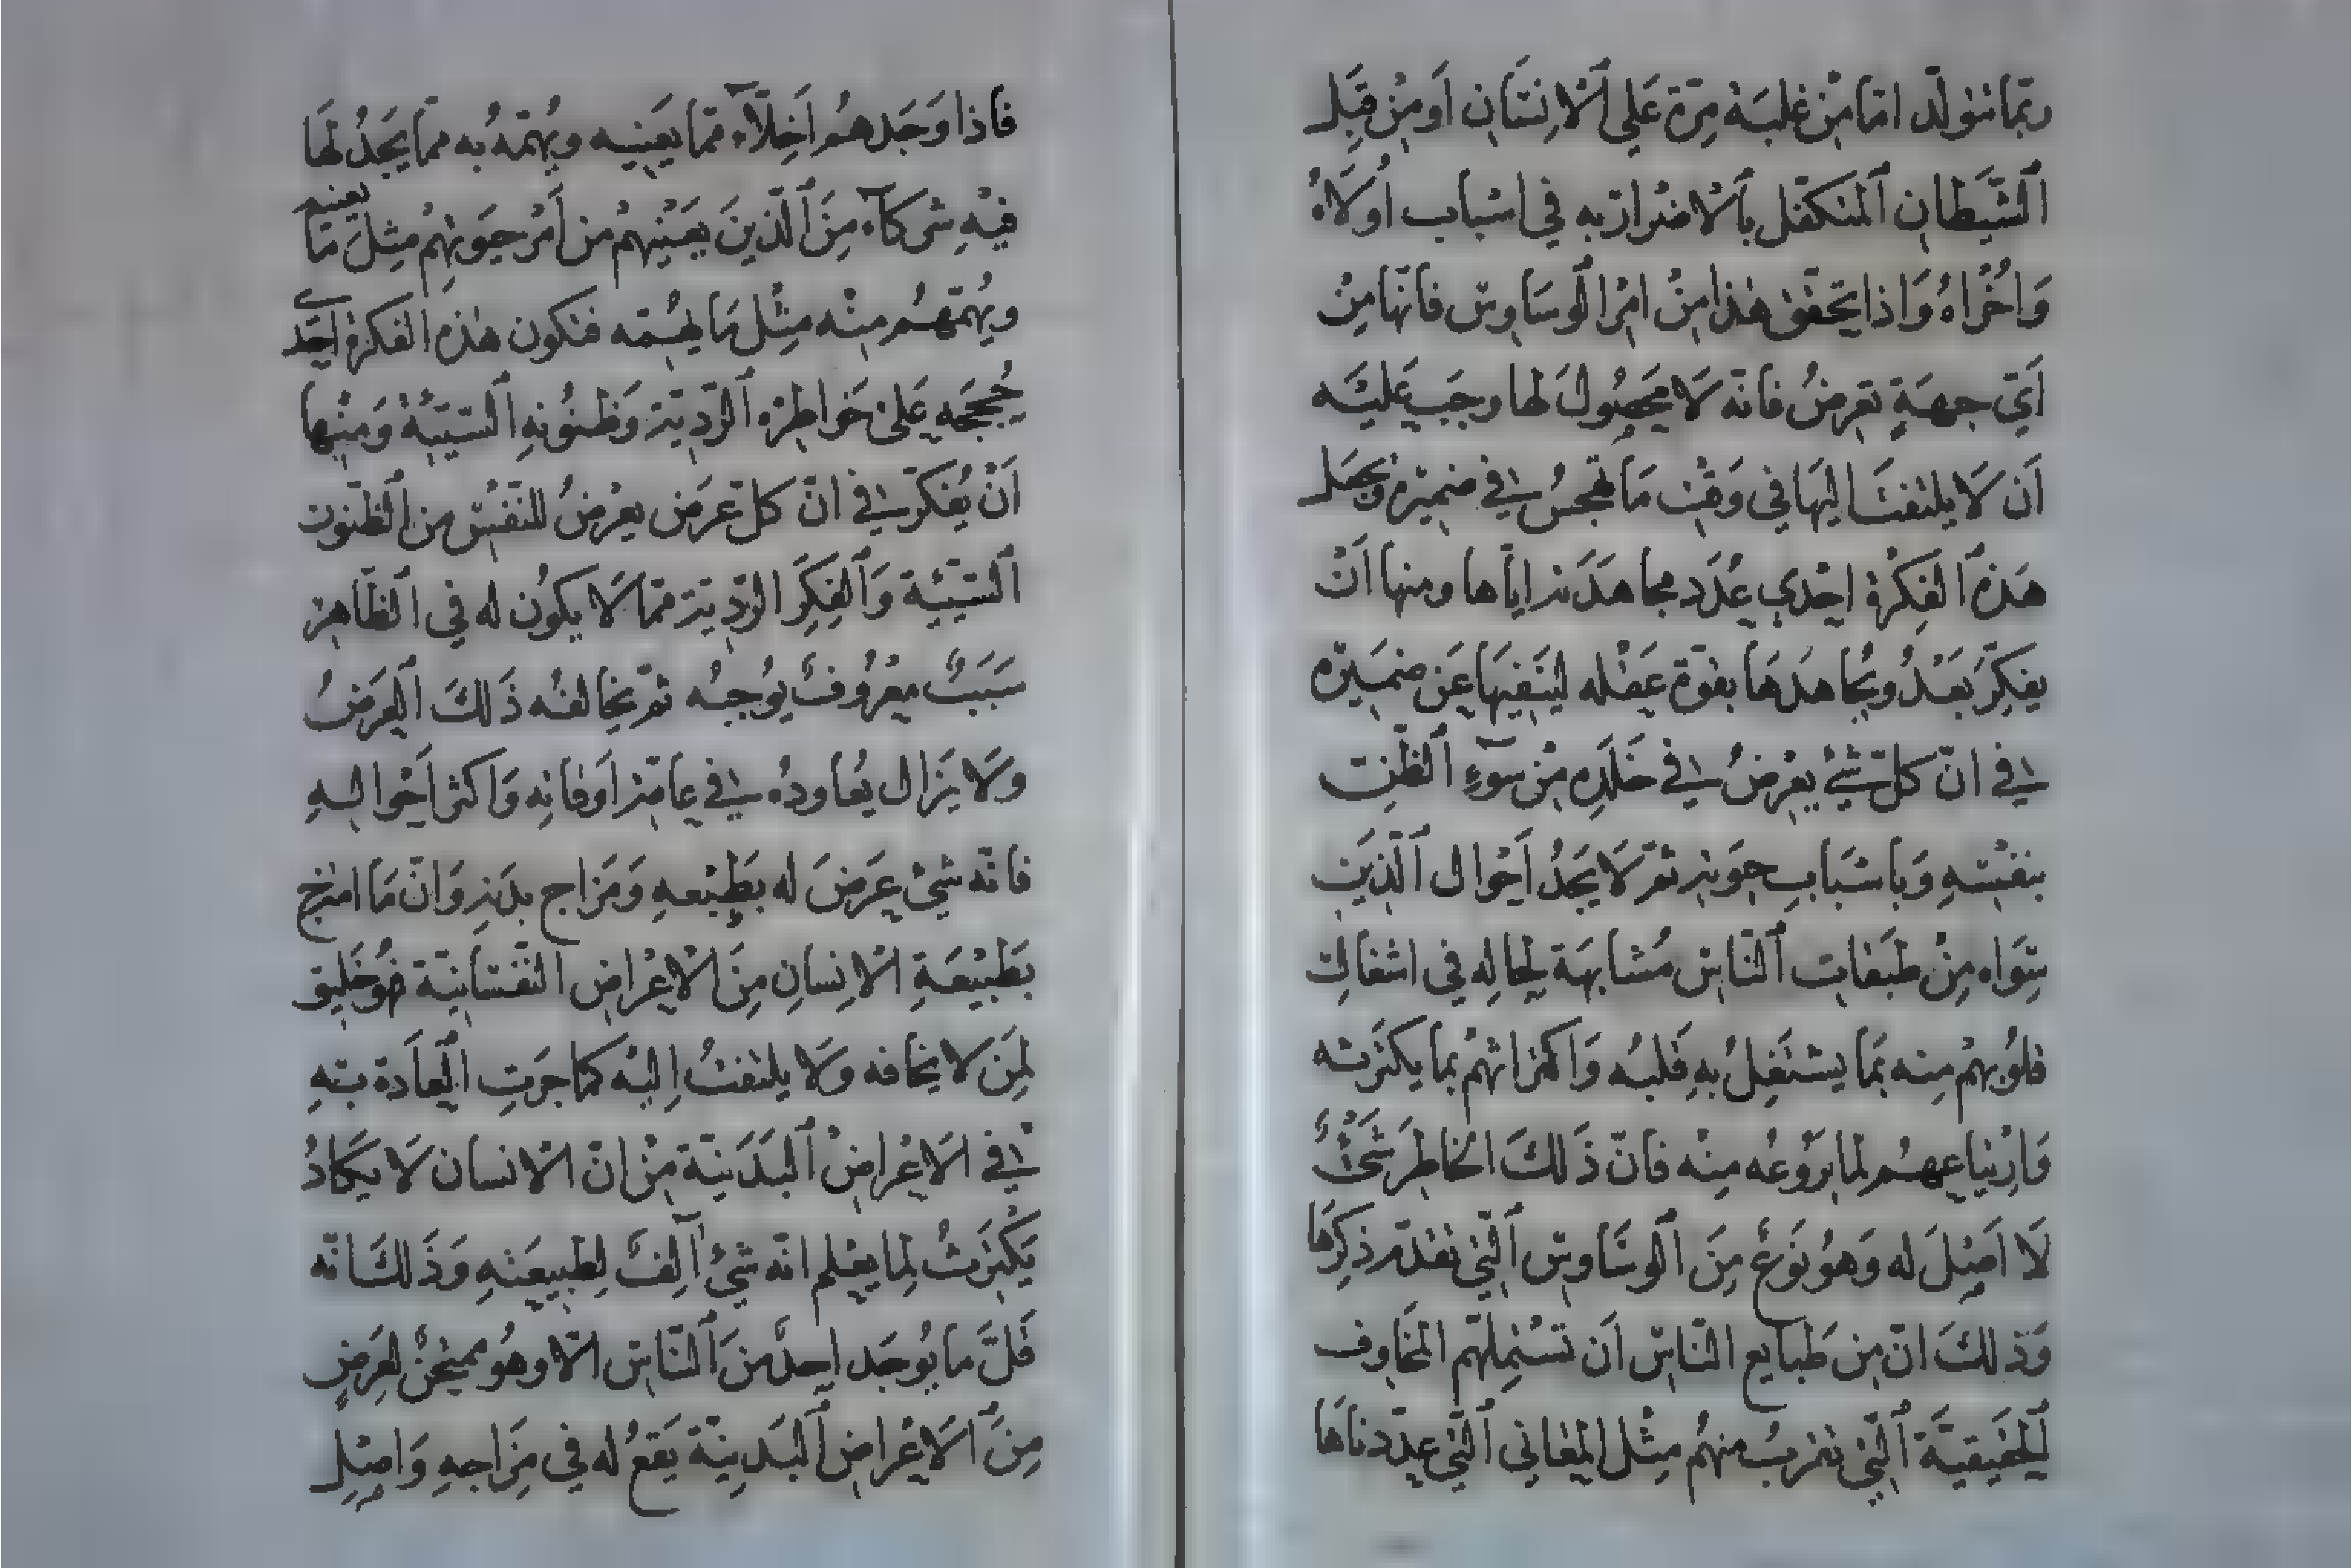 ربّما تتولّد امّا مِنْ غلبَة مِرّة عَلى ٱلْاِنسَان اَو مِنْ قِبَل
ٱلشّيَطان ٱلمتكفّل بٱلْاضْرار به في اسْباب اُولَاهُ
وَاُخْرَاهُ وَاذا تحقّق هٰذا مِنْ امْر ٱلوسَاوس فانّها مِنْ
اَيّ جهَةٍ تعرضُ فانّه لَا محصُولَ لها وجَب عَليْه
اَن لَا يلتفتَ اليهَا في وَقت مَا تهجسُ في ضميْره ويجعَل
هَذه ٱلفِكرة احْدى عُدَد مجاهَدَته ايّاها ومنها اَنْ
يفكِّرَ بعَدُ ويُجاهدَهَا بقوّة عَقْله ليَنفيهَا عَن ضميَره
في انّ كلّ شيْءٍ يعْرضُ في خَلَدِه مِنْ سوٓءِ ٱلظّنِ
بنفْسهِ وَباسْبَاب حيوته ثمّ لَا يجَدُ اَحْوال ٱلّذينَ
سِوَاه مِنْ طبَقات ٱلنّاس مُشابهَة لِحالِه في اشغال
قلُوبهمْ منه بمَا يشتَغِلُ بهِ قَلبُه وَاكتراثهمْ بما يكترَثه
وَارتياعهمُ لِما يروّعُه مِنْه فانّ ذَلكَ الخاطرَ شَيْءٌ
لَا اصْلَ له وَهوُ نَوعٌ مِنَ ٱلوسَاوس ٱلّتي تقدّم ذكِرُهَا
وَذلكَ انّ مِن طَبايع النّاسِ اَن تسْتملِهمّ المخَاوف
ٱلحقيقيّةَ ٱلّتي تقربُ منهمُ مِثْل المعَاني ٱلّتي عدّدناهَا
فاذا وَجَدهمُ اَخِلّآءَ ممّا يعَنيه ويُهمّهُ به ممّا يَجدُ لهَا
فيْهِ شركآءَ مِنَ ٱلّذينَ يعَنيْهمْ من اَمْر حيَوتهمْ مثِلَ مَا يعنيه
ويُهمّهُم مِنْه مثْل مَا يهُمّه فتكون هٰذه الفكرة احدى
حُججَهِ عَلى خَواطره ٱلرّديّة وَظنُونهِ ٱلسّيّئة وَمنْها
اَنْ يُفكرّ في انّ كلّ عَرَض يعْرضُ للنّفْسِ من ٱلظّنون
ٱلسّيّئة وَٱلفِكَر الرّديّة ممّا لَا يكُون له في ٱلظّاهر
سَبَبٌ معْرُوفٌ يوُجبُه ثمّ يخالفُه ذَلكَ ٱلعرَضُ
وَلَا يَزَال يُعاودُه في عامّة اَوقاتِه وَاكثر اَحْوالهِ
فانّه شيْءٌ عرَضَ له بطَبْعهِ وَمزَاج بدَنه وَانّ مَا امتزج
بطَبيْعَةِ الْاِنسانِ مِنَ الْاعْراض النّفسَانيّة فهُوَ خَليق
لِمَن لَا يخافه وَلَا يلتفتُ اِليْه كما جَرَتِ ٱلعادَة بهِ
في الْاعْراضْ ٱلبَدَنيّة مِنْ انّ الْانسان لَا يكَادُ
يَكْترَثُ لِما يعْلم انّه شيْءٌ آلِفٌ لِطبيعَتهِ وَذَلكَ انّه
قَلَّ ما يُوجَد احدٌ مِنَ ٱلنّاس الّا وهوُ ممتحَنٌ لعرَضٍ
مِنَ ٱلْاَعْراض ٱلبَدنيّة يَقعُ له في مزَاجهِ وَاصْلِ